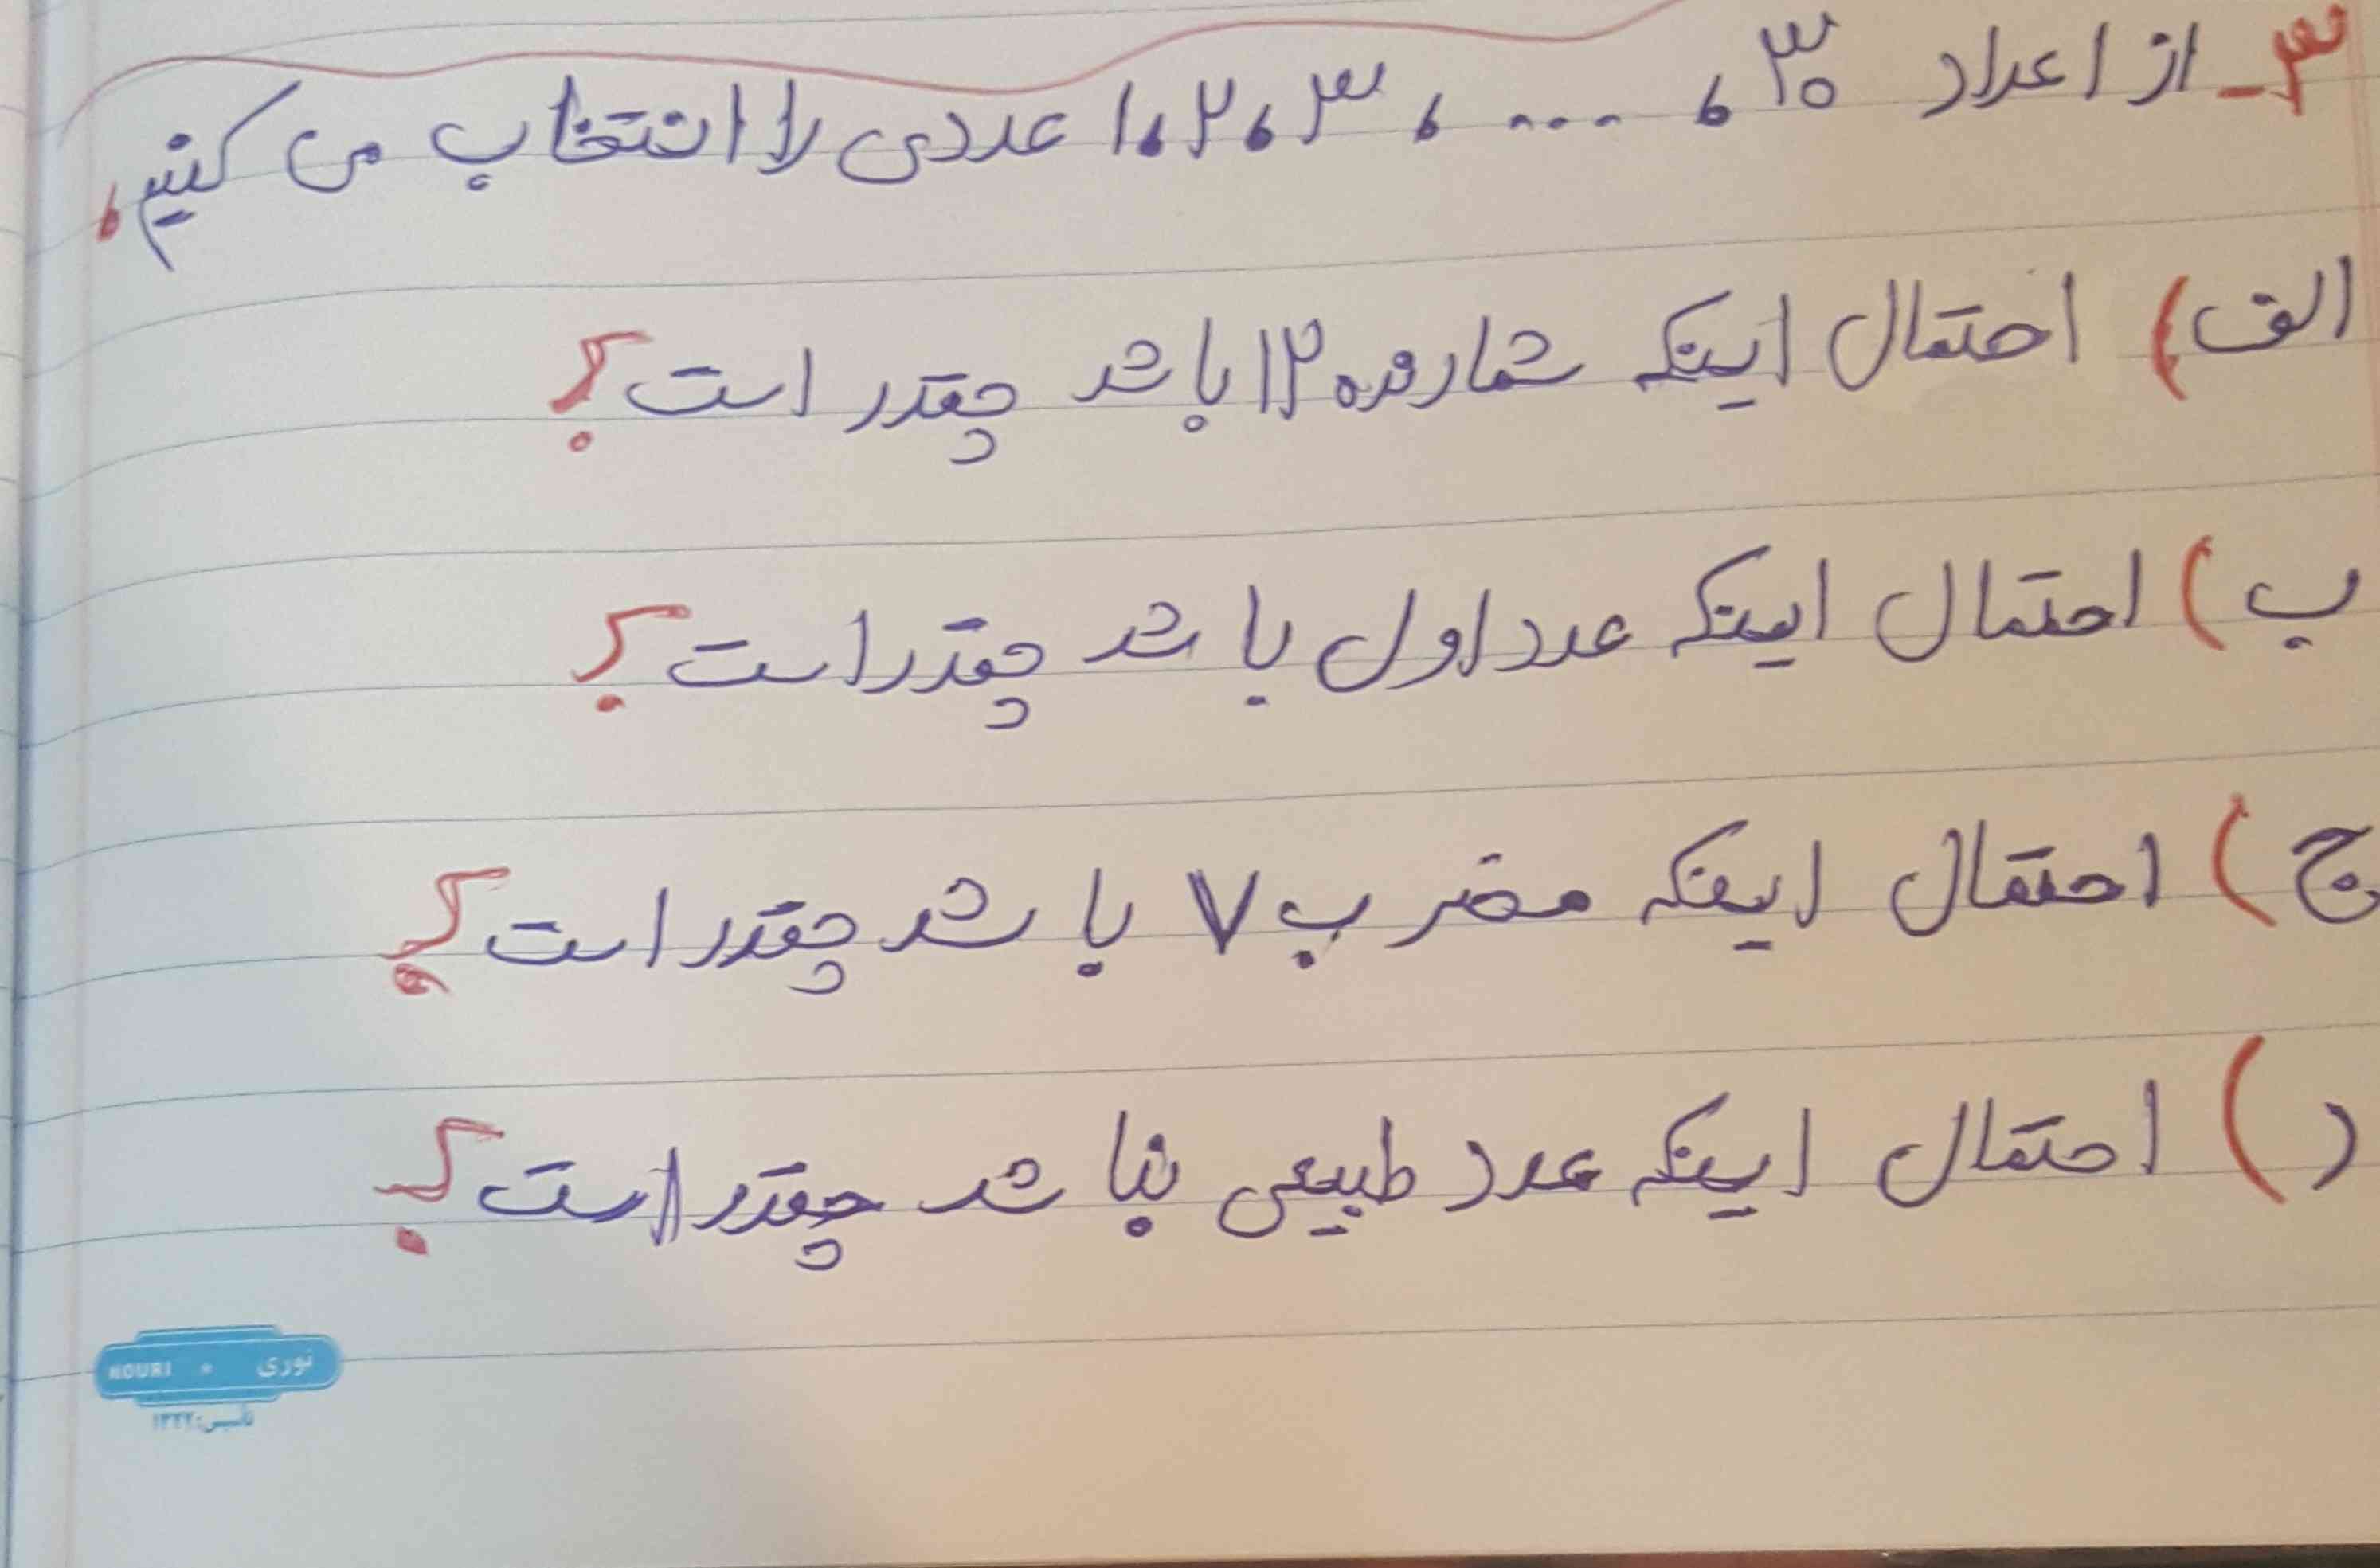 ۳- از اعداد ۳۰، ....، ۳، ۲، ۱ عددی را انتخاب می کنیم،
الف) احتمال اینکه شمارنده ۱۲ باشد چقدر است؟
ب) احتمال اینکه عدد اول باشد چقدر است؟
ج) احتمال اینکه مضرب ۷ باشد چقدر است؟
د) احتمال اینکه عدد طبیعی نباشد چقدر است؟
NOURI * نوری
تأسیس: ۱۳۲۲